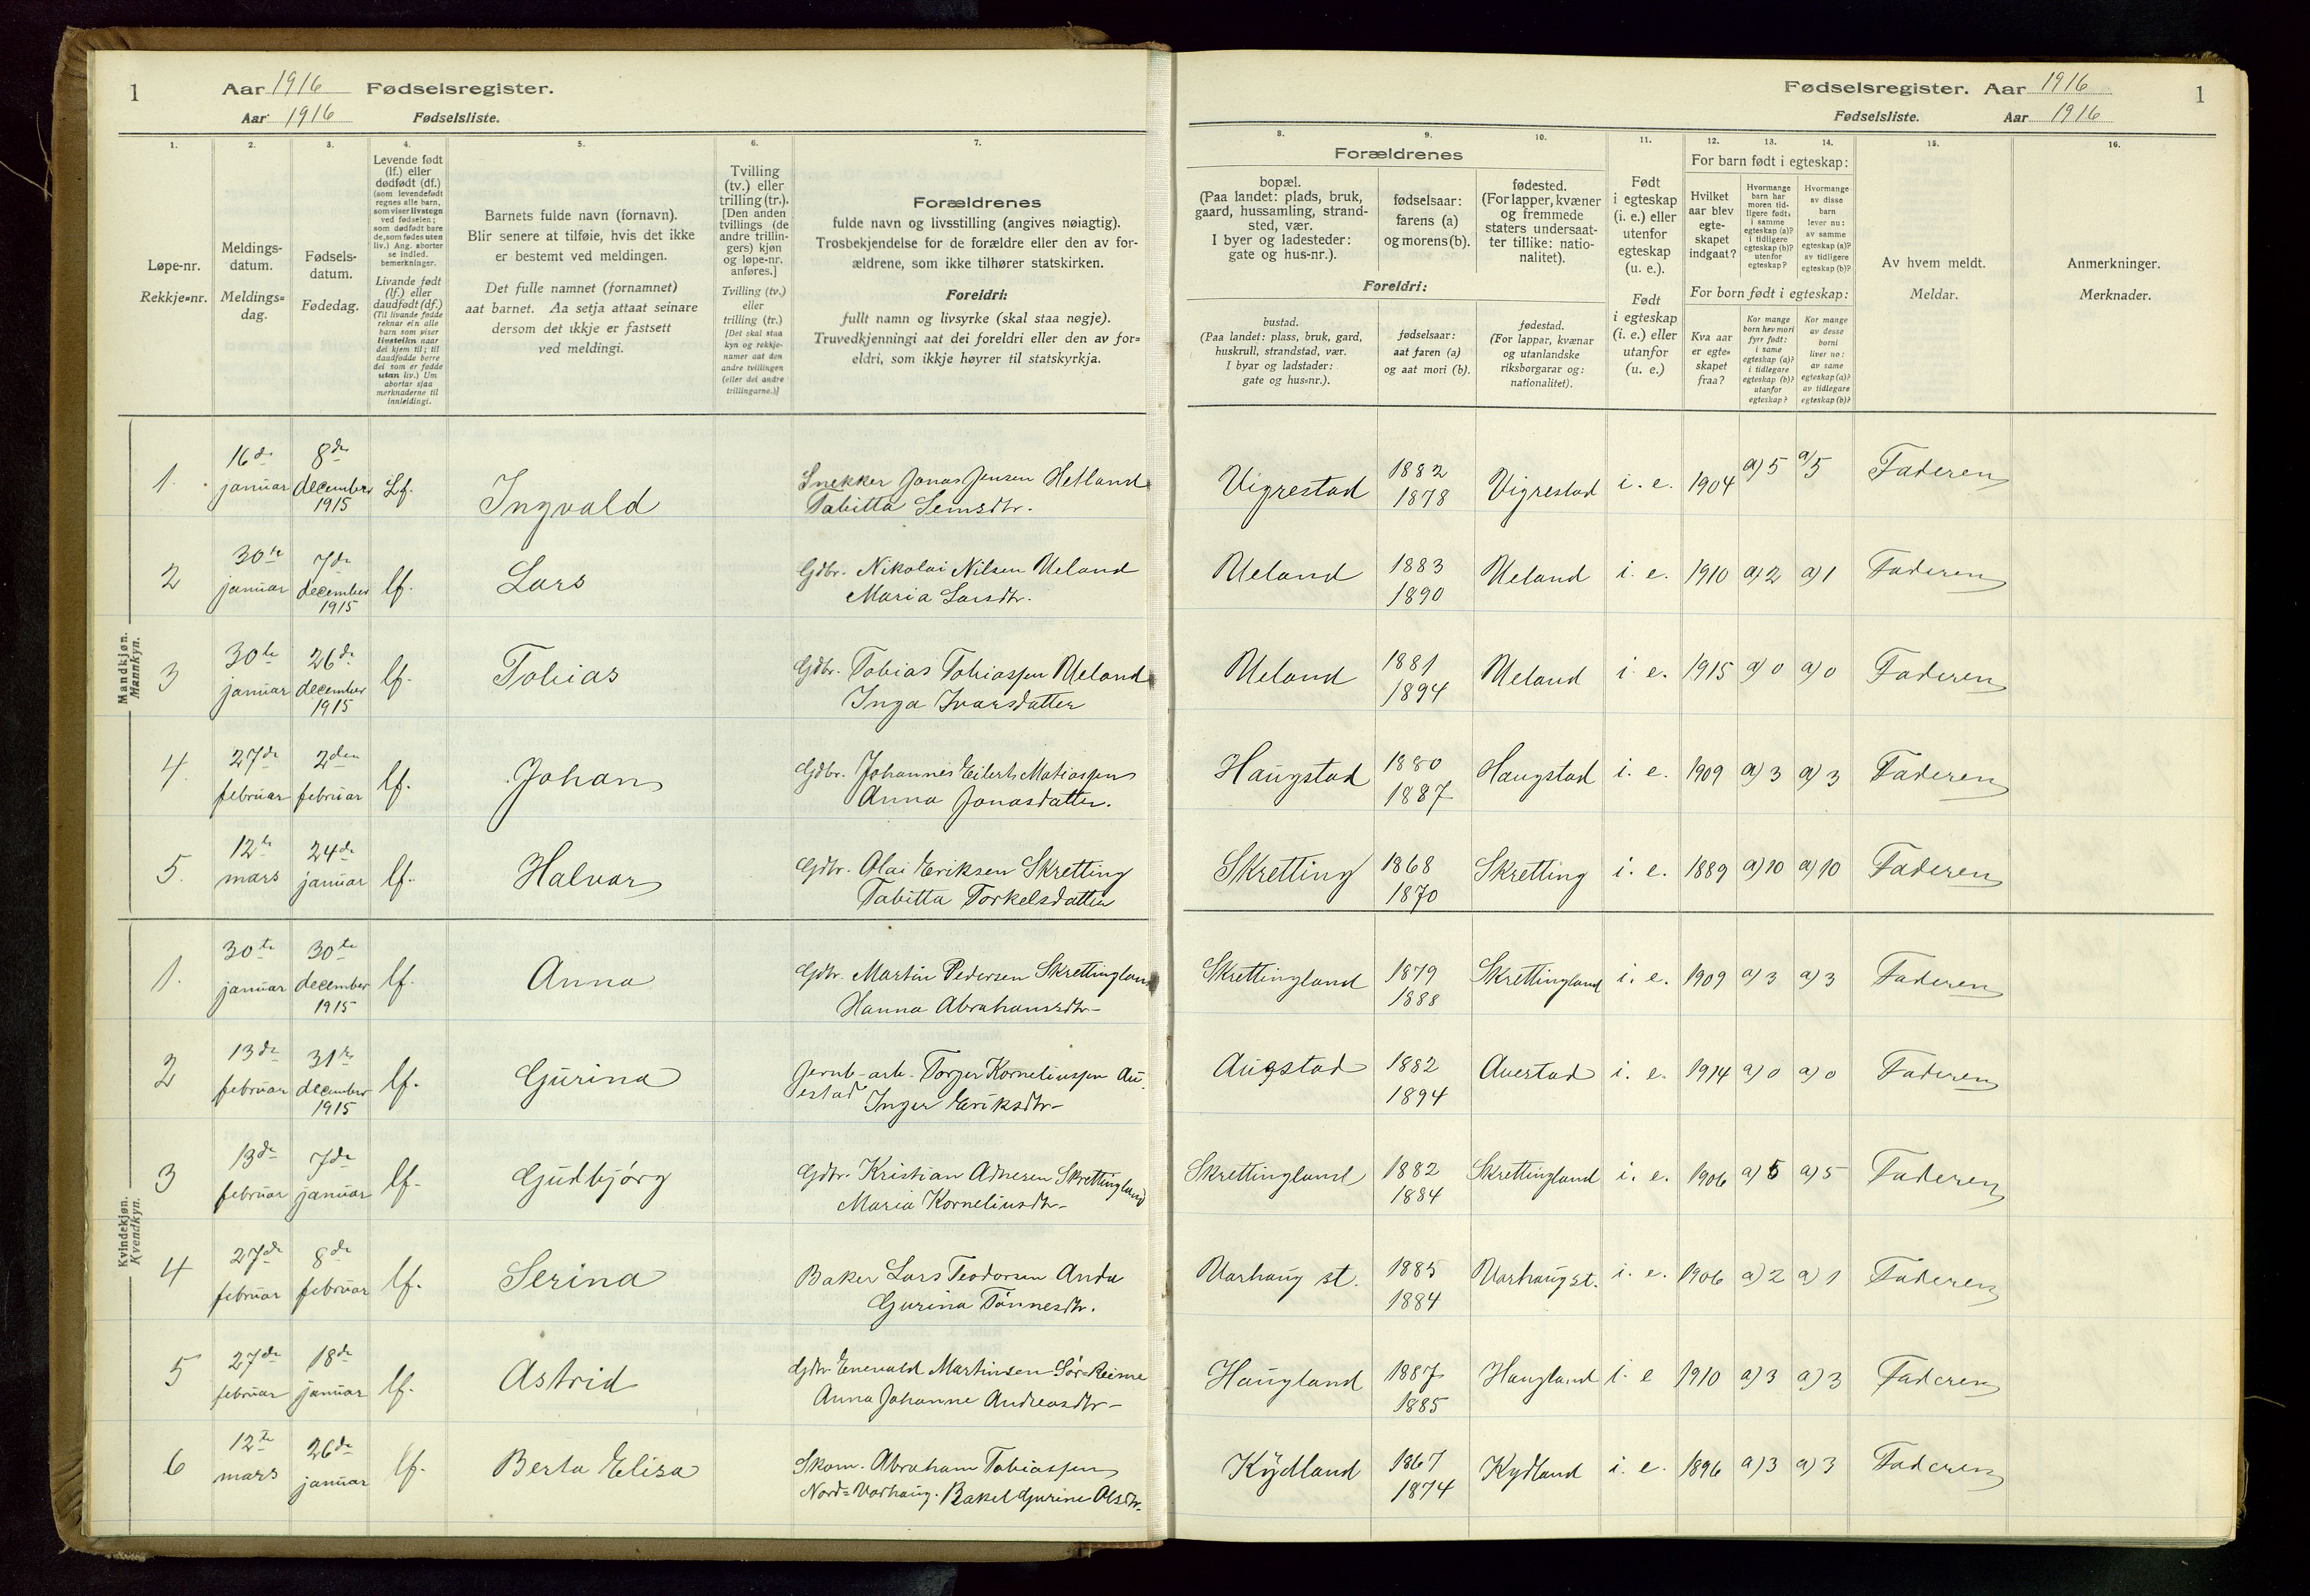 1
Aar 1916 Fødselsregister.
Aar 1916 Fødselsliste.
1. 2. 3. 4. 5. 6. 7.
Løpe-nr.
Rekkje=nr.
Meldings-
datum.
Meldings=
dag.
Fødsels-
datum.
Fødedag.
Levende født
(lf.) eller
dødfødt (df.)
(som levendefødt
regnes alle barn,
som viser livstegn
ved fødselen;
som dødfødt bare
de, som fødes uten
liv.) Ang. aborter
se indled.
bemerkninger.
Livande født
(lf.) eller
daudfødt (df.)
(Til livande fødde
reknar ein alle
barn som viser
livsteikn naar
dei kjem til; til
daudfødde berre
dei som er fødde
utan liv.) Um
abortar sjaa
merknaderne til
innleidingi.
Barnets fulde navn (fornavn).
Blir senere at tilføie, hvis det ikke
er bestemt ved meldingen.
Det fulle namnet (fornamnet)
aat barnet. Aa setja attaat seinare
dersom det ikkje er fastsett
ved meldingi.
Tvilling
(tv.) eller
trilling (tr.).
[Den anden
tvillings (de
andre trillin-
gers) kjøn
og løpe-nr.
anføres.]
Tvilling (tv.)
eller
trilling (tr.)
[Det skal staa
kyn og rekkje-
numer aat den
andre tvillingen
(eller dei andre
trillingarne.)]
Forældrenes
fulde navn og livsstilling (angives nøiagtig).
Trosbekjendelse for de forældre eller den av for-
ældrene, som ikke tilhører statskirken.
Foreldri:
fullt namn og livsyrke (skal staa nøgje).
Truvedkjenningi aat dei foreldri eller den av for=
eldri, som ikkje høyrer til statskyrkja.
Mandkjøn.
Mannkyn.
1. 16de januar 8de december 1915 Lf. Ingvald Snekker Jonas Jensen Hetland
Tabitta Semsdtr.
2 30te januar 7de december 1915 lf. Lars Gdbr. Nikolai Nilsen Ueland
Maria Larsdtr.
3 30te januar 26de december 1915 lf. Tobias Gdbr. Tobias Tobiassen Ueland
Inga Ivarsdatter
4. 27de februar 2den februar lf. Johan Gdbr. Johannes Eilerts Matiassen
Anna Jonasdatter.
5. 12te mars 24de januar lf. Halvar Gdbr. Olai Eriksen Skretting
Tabitta Torkelsdatter
Kvindekjøn.
Kvendkyn.
1. 30te januar 30te december 1915 lf. Anna Gdbr. Martin Pedersen Skrettingland
Hanna Abrahamsdtr-
2 13de februar 31te december 1915 lf. Gurina Jernb-arb. Torger Korneliussen Au-
estad Inger Eriksdtr-
3 13de februar 7de januar lf- Gudbjørg Gdbr. Kristian Adnesen Skrettingland
Maria Korneliusdtr-
4 27de februar 8de februar lf- Serina Baker Lars Teodorsen Anda
Gurina Tønnesdtr.
5 27de februar 18de januar lf. Astrid Gdbr Enevald Martinsen Sør-Reime
Anna Johanne Andreasdtr-
6 12te mars 26de januar lf- Berta Elisa Skom. Abraham Tobiassen
Nord=Varhaug. Rakel Gurine Olsdtr.
Fødselsregister. Aar 1916
1
Fødselsliste. Aar 1916
8. 9. 10. 11. 12. 13. 14. 15. 16.
Forældrenes
bopæl.
(Paa landet: plads, bruk,
gaard, hussamling, strand-
sted, vær.
I byer og ladesteder:
gate og hus-nr.).
fødselsaar:
farens (a)
og morens (b).
fødested.
(For lapper, kvæner
og fremmede
staters undersaat-
ter tillike: natio-
nalitet).
Foreldri:
bustad.
(Paa landet: plass, bruk, gard,
huskrull, strandstad, vær.
I byar og ladstader:
gate og hus=nr.).
fødselsaar:
aat faren (a)
og aat mori (b).
fødestad.
(For lappar, kvænar
og utanlandske
riksborgarar og:
nationalitet).
Født
i egteskap
(i. e.) eller
utenfor
egteskap
(u. e.).
Født
i egteskap
(i. e.) eller
utanfor
(u. e.)
For barn født i egteskap:
Hvilket
aar blev
egte-
skapet
indgaat?
Hvormange
barn har
moren tid-
ligere født:
i samme
egteskap (a)?
i tidligere
egteskap (b)?
utenfor
egteskap?
Hvormange
av disse
barn
lever nu:
av samme
egteskap (a)?
av tidligere
egteskap (b)?
For born født i egteskap:
Kva aar
er egte=
skapet
fraa?
Kor mange
born hev mori
fyrr født:
i same
egteskap (a)?
i tidlegare
egteskap (b)?
utanfor
egteskap?
Kor mange
av desse
borni
liver no:
av same
egteskap (a)?
av tidlegare
egteskap (b)?
Av hvem meldt.
Meldar.
Anmerkninger.
Merknader.
Vigrestad 1882 1878 Vigrestad i. e. 1904 a) 5 a) 5 Faderen
Ueland 1883 1890 Ueland i. e. 1910 a) 2 a) 1 Faderen
Ueland 1881 1894 Ueland i. e. 1915 a) 0 a) 0 Faderen
Haugstad 1880 1887 Haugstad i. e. 1909 a) 3 a) 3 Faderen
Skretting 1868 1870 Skretting i. e. 1889 a) 10 a) 10 Faderen
Skrettingland 1879 1888 Skrettingland i. e. 1909 a) 3 a) 3 Faderen
Augstad 1882 1894 Auestad i. e. 1914 a) 0 a) 0 Faderen
Skrettingland 1882 1884 Skrettingland i. e. 1906 a) 5 a) 5 Faderen
Varhaug st. 1885 1884 Varhaug st. i. e. 1906 a) 2 a) 1 Faderen
Haugland 1887 1885 Haugland i. e 1910 a) 3 a) 3 Faderen
Kydland 1867 1874 Kydland i. e. 1896 a) 3 a) 3 Faderen